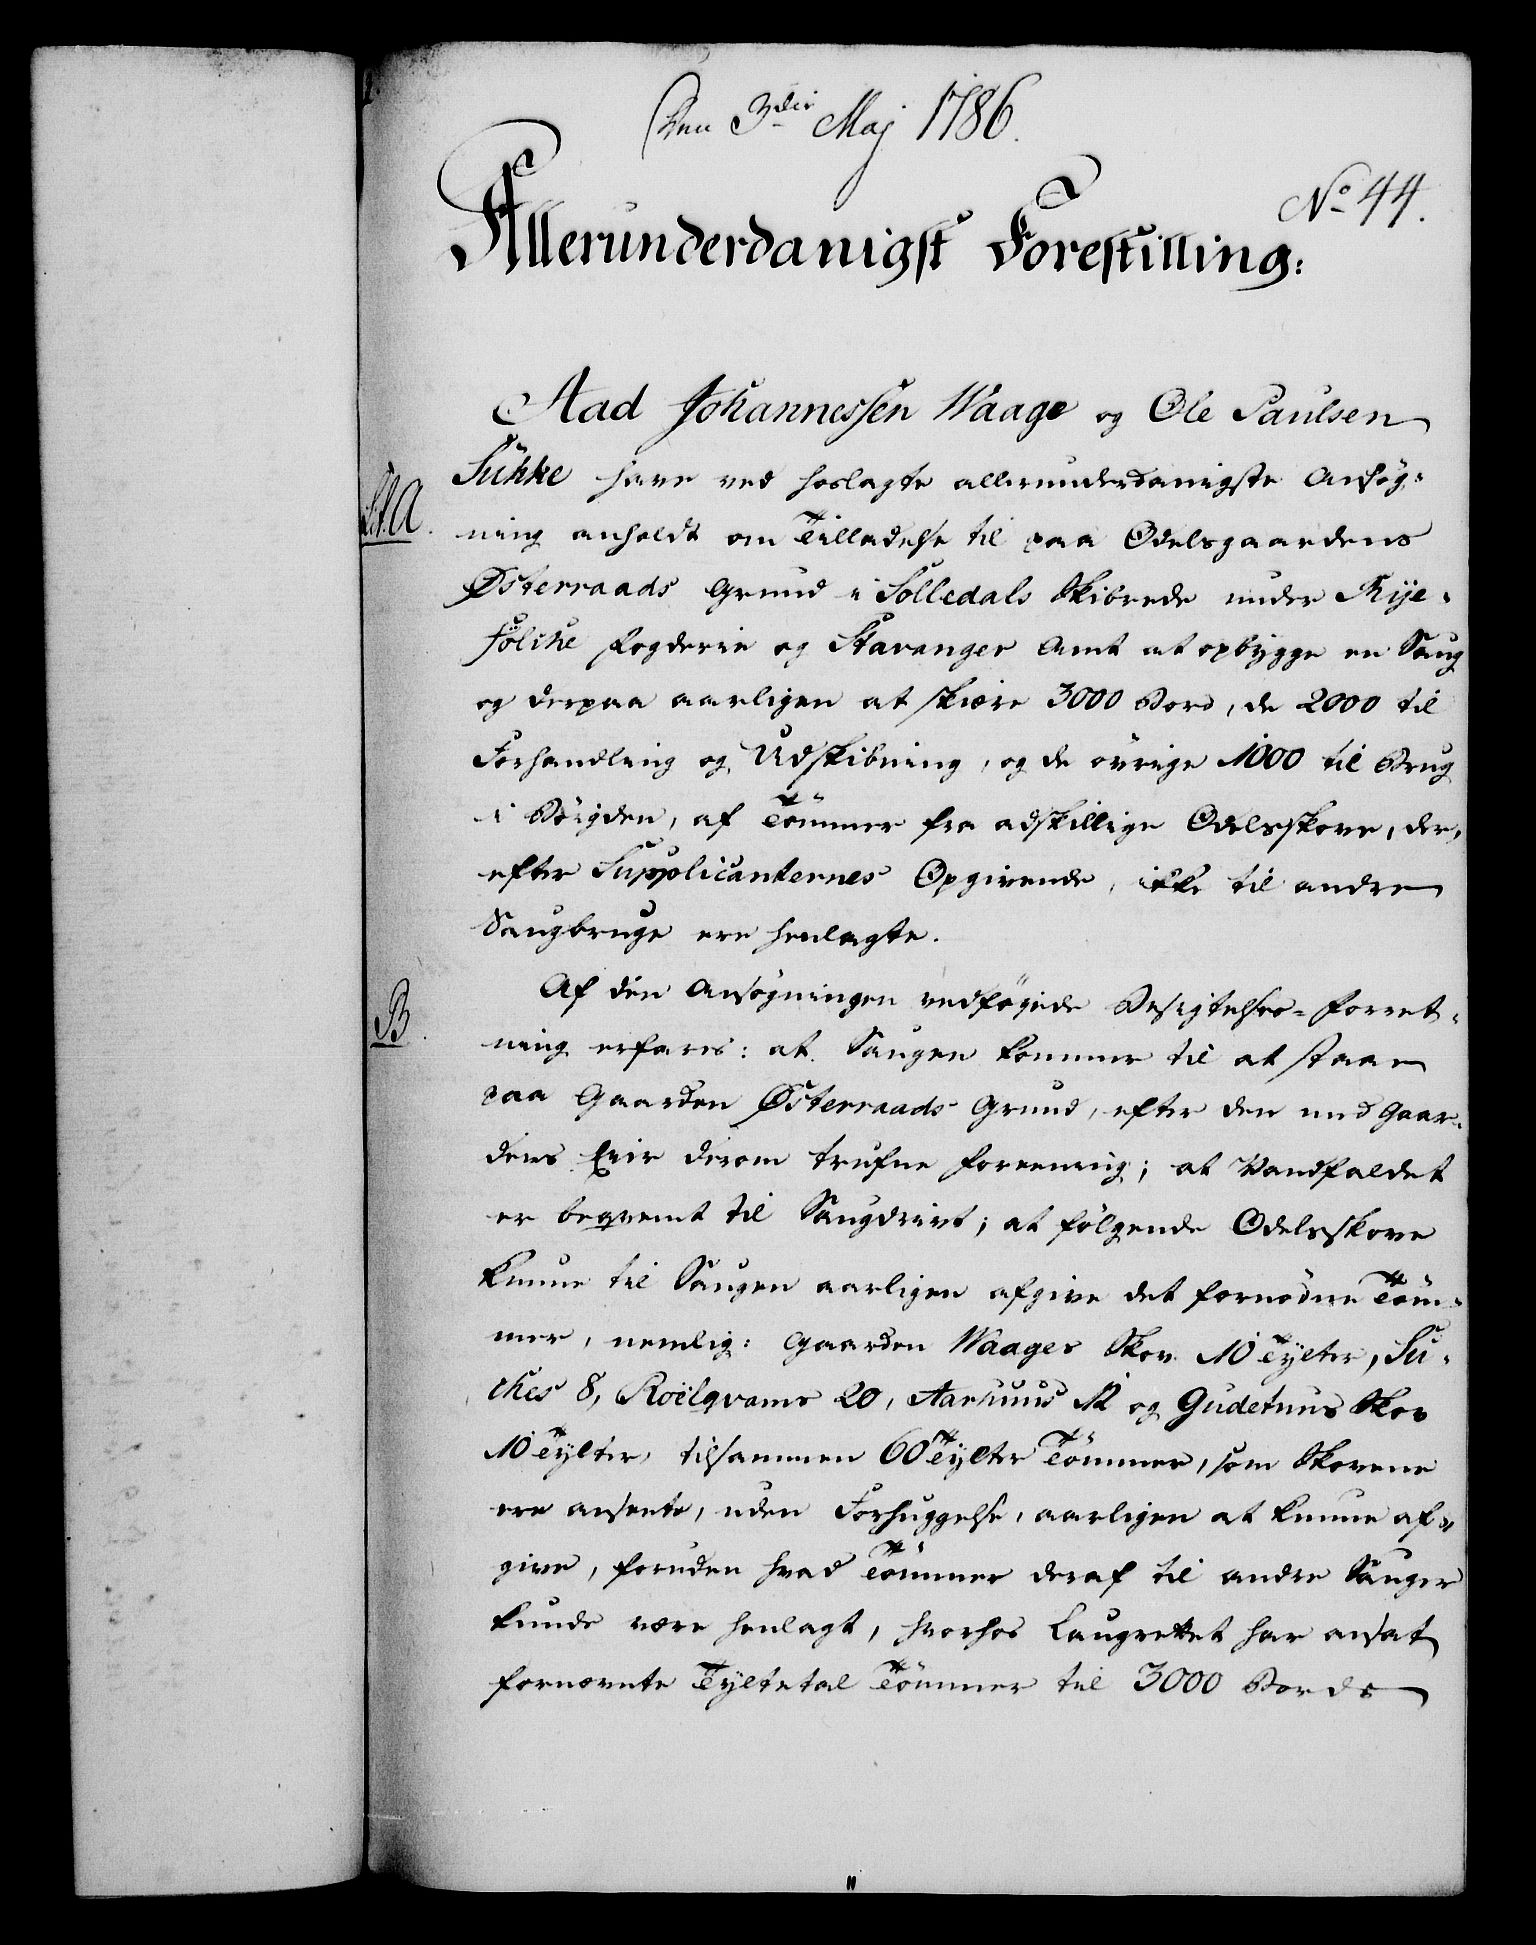 Den 3die Maj 1786.
No 44.
Allerunderdanigst Forestilling:
Aad Johannessen Waage og Ole Paulsen
Sukke have ved hoslagte allerunderdanigste Ansøg-
Lit. A.
ning anholdt om Tilladelse til paa Odelsgaardens
Østerraads Grund i Solledals Skibrede under Rye-
fölche Fogderie og Stavanger Amt at opbygge en Saug
og derpaa aarligen at skiære 3000 Bord, de 2000 til
Forhandling og Udskibning, og de övrige 1000 til Brug
i Böigden, af Tömmer fra adskillige Odelsskove, der,
efter Supplicanternes Opgivende, ikke til andre
Saugbruge ere henlagte.
Af den Ansögningen vedföiede Besigtelses-Forret-
B.
ning erfares: at Saugen kommer til at staae
paa Gaarden Østerraads Grund, efter den med Gaar-
dens Eier derom trufne Foreening; at Vandfaldet
er beqvemt til Saugdrivt; at fölgende Odelsskove
kunne til Saugen aarligen afgive det fornödne Töm-
mer, nemlig: Gaarden Waages Skov 10 Tylter, Su-
ches 8, Roelqvams 20, Aarhuus 12 og Gudetuns Skov
10 Tylter, tilsammen 60 Tylter Tömmer, som Skovene
ere ansente, uden Forhuggelse, aarligen at kunne af-
give, foruden hvad Tömmer deraf til andre Sauger
kunde være henlagt, hvorhos Laugrettet har ansat
fornævnte Tyltetal Tömmer til 3000 Bords